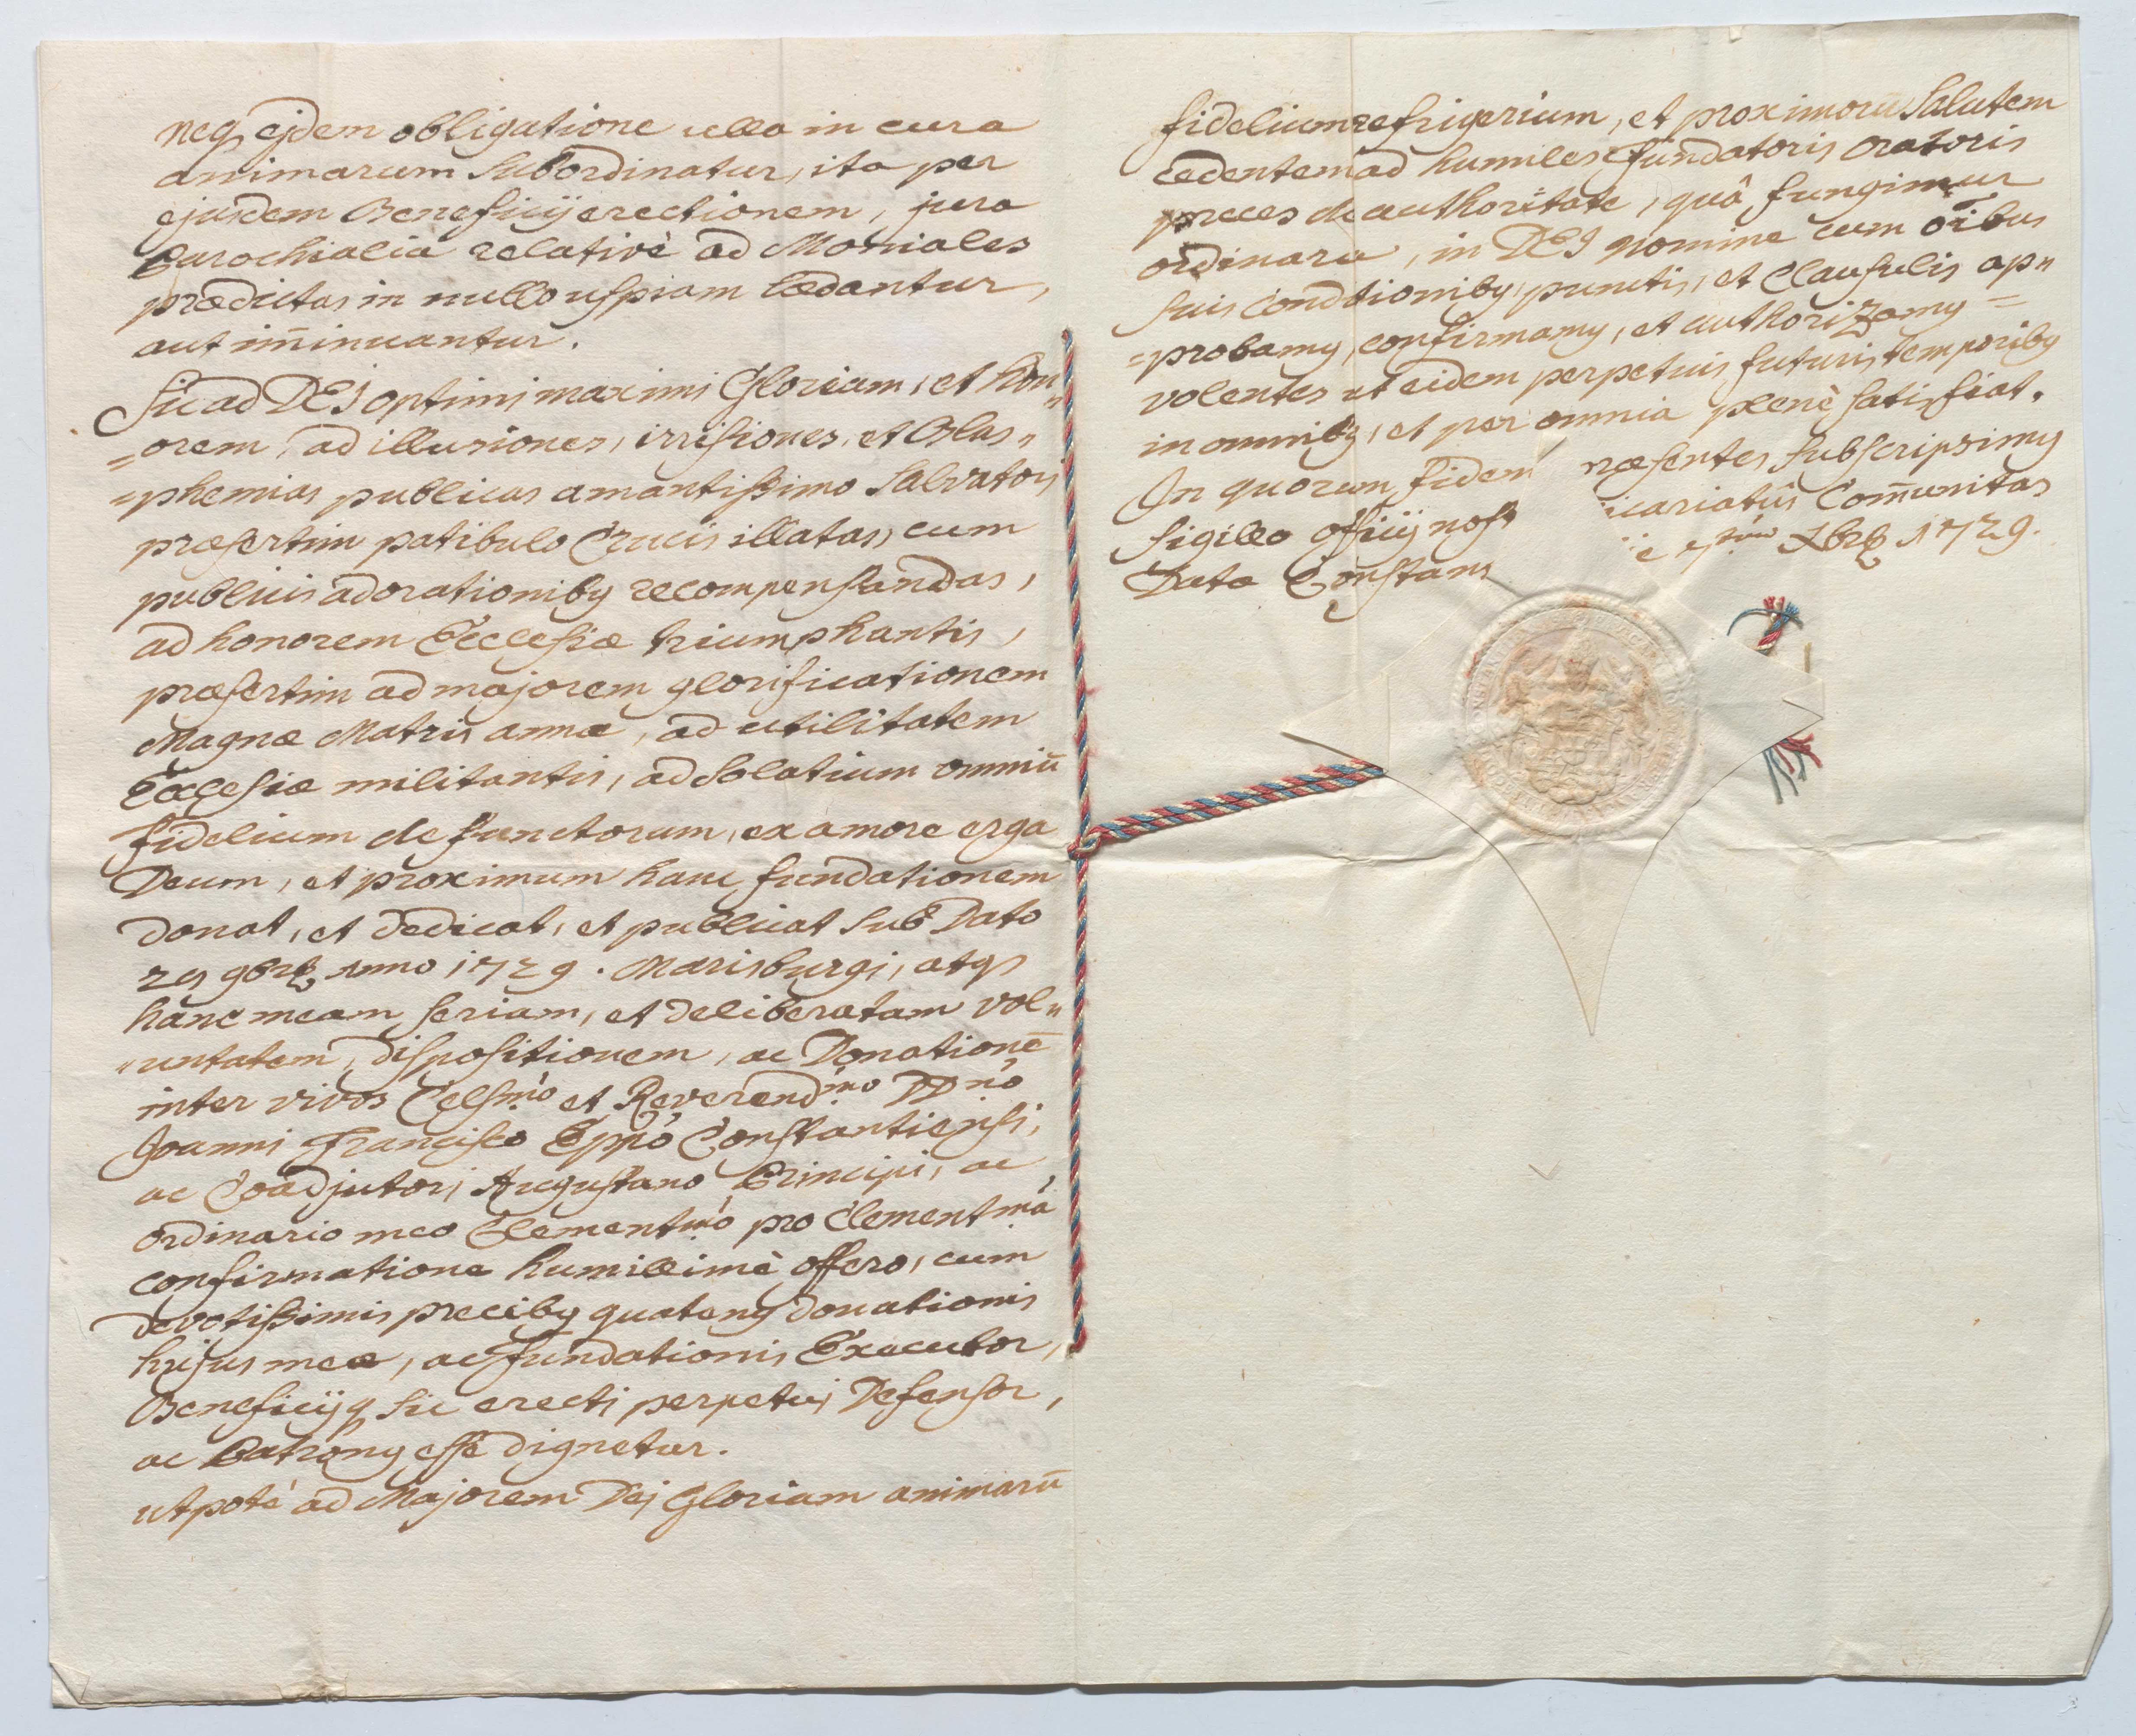 neq₃ ejdem obligatione ulla in cura
animarum Subordinatur, ita per
ejusdem Beneficij erectionem, jura
Parochialia relativè ad Moniales
prædictas in nullo uspiam lædantur,
aut im̄inuantur.
Sic ad DEI optimi maximi Gloriam, et hon„
=orem, ad illusiones, irrisiones, et Blas„
=phemias publicas amantissimo Salvatori
præsertim patibulo Crucis illatas, cum
publicis adorationiby recompensandas,
ad honorem Ecclesiæ triumphantis,
præsertim ad majorem glorificationem
Magnæ Matris annæ, ad utilitatem
Ecclesiæ militantis, ad Solatium omniū
fidelium defunctorum, ex amore erga
Deum, et proximum hanc fundationem
donat, et dedicat, et publicat Sub Dato
29 9bris Anno 1729. Marisburgi, atq₃
hanc meam seriam, et deliberatam vol„
„untatem, dispositionem, ac Donationē
inter vivos Celsmo et Reverendmo DD no
Joanni Francisco Eppo Constantiensi,
ac Coadjutori Augustano Principi, ac
ordinario meo Clementmo pro Clementma
confirmatione humillimè offero, cum
devotissimis preciby quateny donationis
hujus meæ, ac fundationis Executor,
Beneficijq sic erecti perpetui Defensor,
ac Patrony esse dignetur.
utpotè ad Majorem Dei Gloriam animarū
fidelium refrigerium, et proximorū Salutem
cedentem ad humiles fundatoris oratoris
preces de authoritate, quâ fungimur
ordinaria, in DEI nomine cum oībus
suis conditioniby, punctis, et Clausulis ap„
=probamy, confirmamy, et authorizamy =
volentes ut eidem perpetuis futuris temporiby
in omniby, et per omnia plenè satisfiat.
In quorum fidem ræsentes subscripsimy
Sigillo officij nost icariatûs Com̄unitas
Data Constan Xbris 1729.